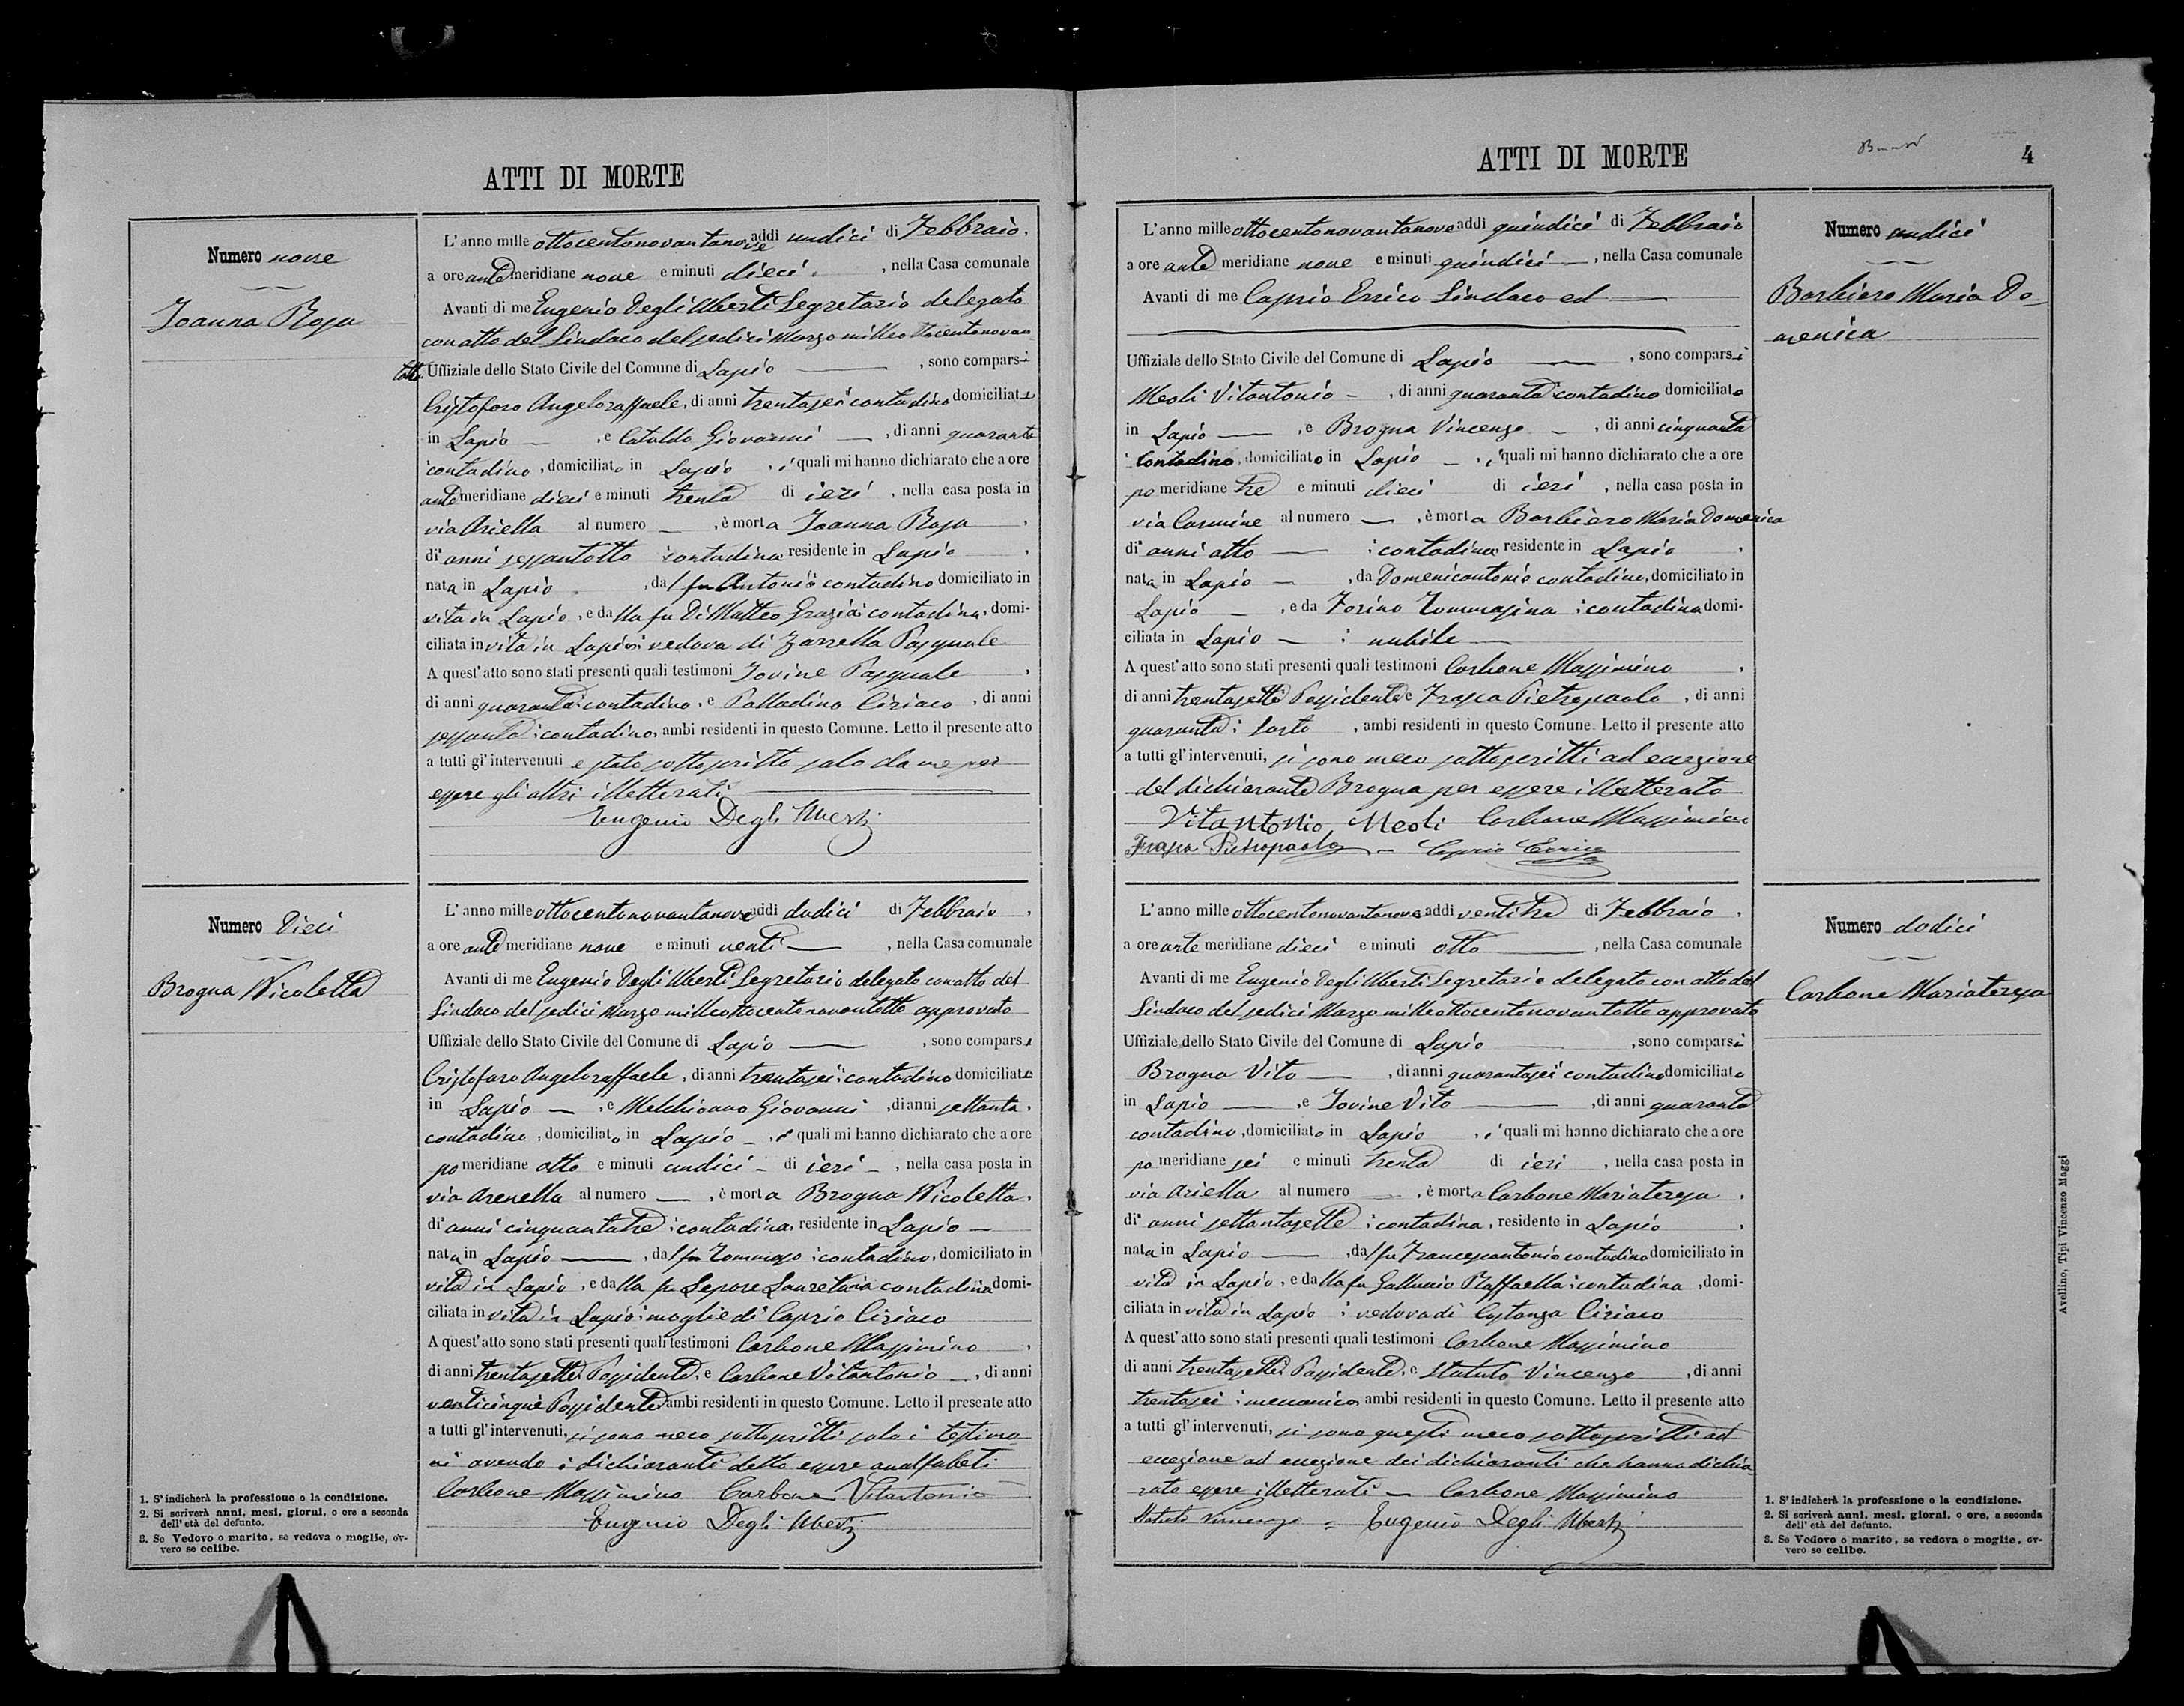 ATTI DI MORTE
Numero nove
Joanna Rosa
L'anno mille ottocentonovantanove addì undici di Febbraio,
a ore ante meridiane nove e minuti dieci, nella Casa comunale
Avanti di me Eugenio Degli Uberti Segretario delegato
con atto del Sindaco del sedici Marzo milleottocentonovan
totto Uffiziale dello Stato Civile del Comune di Lapio —, sono comparsi
Cristoforo Angeloraffaele, di anni trentasei contadino domiciliato
in Lapio —, e Cataldo Giovanni —, di anni quaranta
contadino, domiciliato in Lapio, i quali mi hanno dichiarato che a ore
ante meridiane dieci e minuti trenta di ieri, nella casa posta in
via Ariella al numero —, è morta Joanna Rosa,
di anni sessantotto contadina residente in Lapio,
nata in Lapio, dal fu Antonio contadino domiciliato in
vita in Lapio, e dalla fu Di Matteo Grazia contadina, domi-
ciliata in vita in Lapio: vedova di Zarrella Pasquale
A quest'atto sono stati presenti quali testimoni Iovine Pasquale,
di anni quaranta: contadino, e Palladino Ciriaco, di anni
sessanta: contadino, ambi residenti in questo Comune. Letto il presente atto
a tutti gl'intervenuti e stato sottoscritto solo da me per
essere gli altri illetterati
Eugenio Degli Uberti
Numero Dieci
Brogna Nicoletta
L'anno mille ottocentonovantanove addì dodici di Febbraio,
a ore ante meridiane nove e minuti venti —, nella Casa comunale
Avanti di me Eugenio Degli Uberti Segretario delegato con atto del
Sindaco del sedici Marzo milleottocentonovantotto approvato
Uffiziale dello Stato Civile del Comune di Lapio —, sono comparsi
Cristofaro Angeloraffaele, di anni trentasei: contadino domiciliato
in Lapio —, e Melchionno Giovanni, di anni settanta,
contadino, domiciliato in Lapio —, i quali mi hanno dichiarato che a ore
po meridiane otto e minuti undici — di ieri —, nella casa posta in
via Arenella al numero —, è morta Brogna Nicoletta,
di anni cinquantatre: contadina, residente in Lapio —
nata in Lapio —, dal fu Tommaso: contadino, domiciliato in
vita in Lapio, e dalla fu Lepore Lauretana contadina domi-
ciliata in vita in Lapio: moglie di Caprio Ciriaco
A quest'atto sono stati presenti quali testimoni Carbone Massimino,
di anni trentasette Possidente, e Carbone Vitantonio —, di anni
venticinque Possidente ambi residenti in questo Comune. Letto il presente atto
a tutti gl'intervenuti, si sono meco sottoscritti solo i testimo
ni avendo i dichiaranti detto essere analfabeti
Carbone Massimino Carbone Vitantonio
Eugenio Degli Uberti
1. S'indicherà la professione o la condizione.
2. Si scriverà anni, mesi, giorni, o ore a seconda
dell'età del defunto.
3. Se Vedovo o marito, se vedova o moglie, ov-
vero se celibe.
ATTI DI MORTE
4
L'anno mille ottocentonovantanove addì quindici di Febbraio
a ore ante meridiane nove e minuti quindici —, nella Casa comunale
Avanti di me Caprio Errico Sindaco ed —
Uffiziale dello Stato Civile del Comune di Lapio —, sono comparsi
Meoli Vitantonio —, di anni quaranta contadino domiciliato
in Lapio —, e Brogna Vincenzo —, di anni cinquanta
contadino, domiciliato in Lapio —, i quali mi hanno dichiarato che a ore
po meridiane tre e minuti dieci di ieri, nella casa posta in
via Carmine al numero —, è morta Barbiero Maria Domenica
di anni otto —: contadina residente in Lapio,
nata in Lapio —, da Domenicantonio contadino, domiciliato in
Lapio —, e da Forino Tommasina: contadina domi-
ciliata in Lapio —: nubile —
A quest'atto sono stati presenti quali testimoni Carbone Massimino,
di anni trentasette Possidente e Frasca Pietropaolo, di anni
quaranta: Sarto, ambi residenti in questo Comune. Letto il presente atto
a tutti gl'intervenuti, si sono meco sottoscritti ad eccezione
del dichiarante Brogna per essere illetterato
Vitantonio Meoli Carbone Massimino
Frasca Pietropaolo — Caprio Errico
Numero undici
Barbiero Maria Do-
menica
L'anno mille ottocentonovantanove addì ventitre di Febbraio,
a ore ante meridiane dieci e minuti otto —, nella Casa comunale
Avanti di me Eugenio Degli Uberti Segretario delegato con atto del
Sindaco del sedici Marzo milleottocentonovantotto approvato
Uffiziale dello Stato Civile del Comune di Lapio, sono comparsi
Brogna Vito —, di anni quarantasei contadino domiciliato
in Lapio —, e Iovine Vito —, di anni quaranta
contadino, domiciliato in Lapio, i quali mi hanno dichiarato che a ore
po meridiane sei e minuti trenta di ieri, nella casa posta in
via Ariella al numero —, è morta Carbone Mariateresa,
di anni settantasette: contadina, residente in Lapio,
nata in Lapio —, dal fu Francescantonio contadino domiciliato in
vita in Lapio, e dalla fu Galluccio Raffaella: contadina, domi-
ciliata in vita in Lapio: vedova di Costanza Ciriaco
A quest'atto sono stati presenti quali testimoni Carbone Massimino
di anni trentasette: Possidente, e Statuto Vincenzo, di anni
trentasei: meccanico, ambi residenti in questo Comune. Letto il presente atto
a tutti gl'intervenuti, si sono questi meco sottoscritti ad
eccezione ad eccezione dei dichiaranti che hanno dichia
rato essere illetterati — Carbone Massimino
Statuto Vincenzo = Eugenio Degli Uberti
Numero dodici
Carbone Mariateresa
1. S'indicherà la professione o la condizione.
2. Si scriverà anni, mesi, giorni, o ore, a seconda
dell'età del defunto.
3. Se Vedovo o marito, se vedova o moglie, ov-
vero se celibe.
Avellino, Tipi Vincenzo Maggi